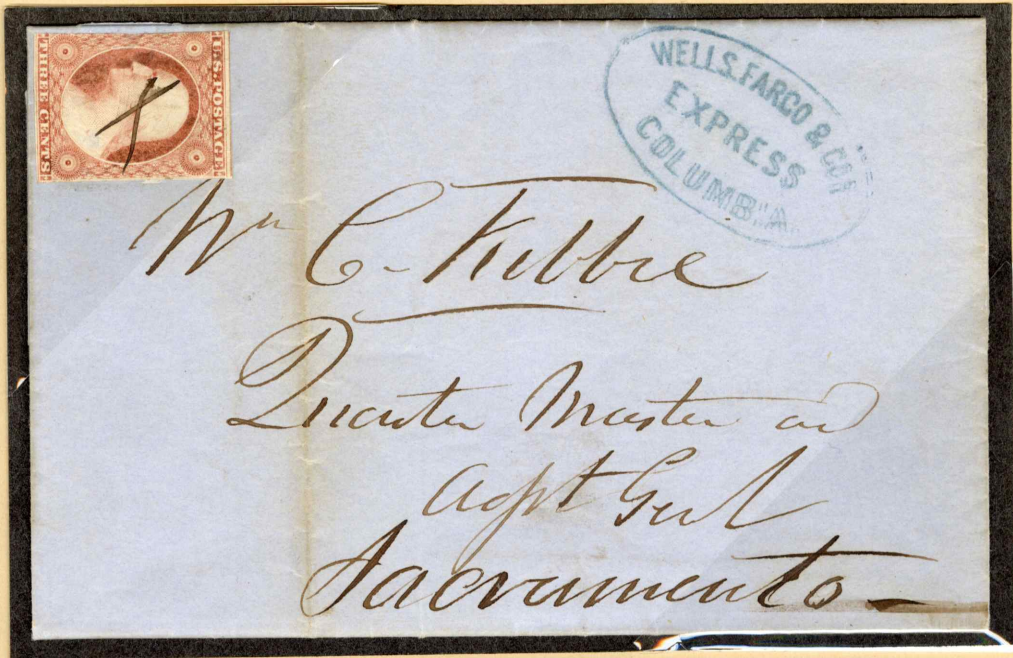 U.S. POSTAGE
THREE CENTS
WELLS, FARGO & CO
EXPRESS
COLUMBIA
Wm C. Kibbie
Quarter Master and
Agt Genl
Sacramento